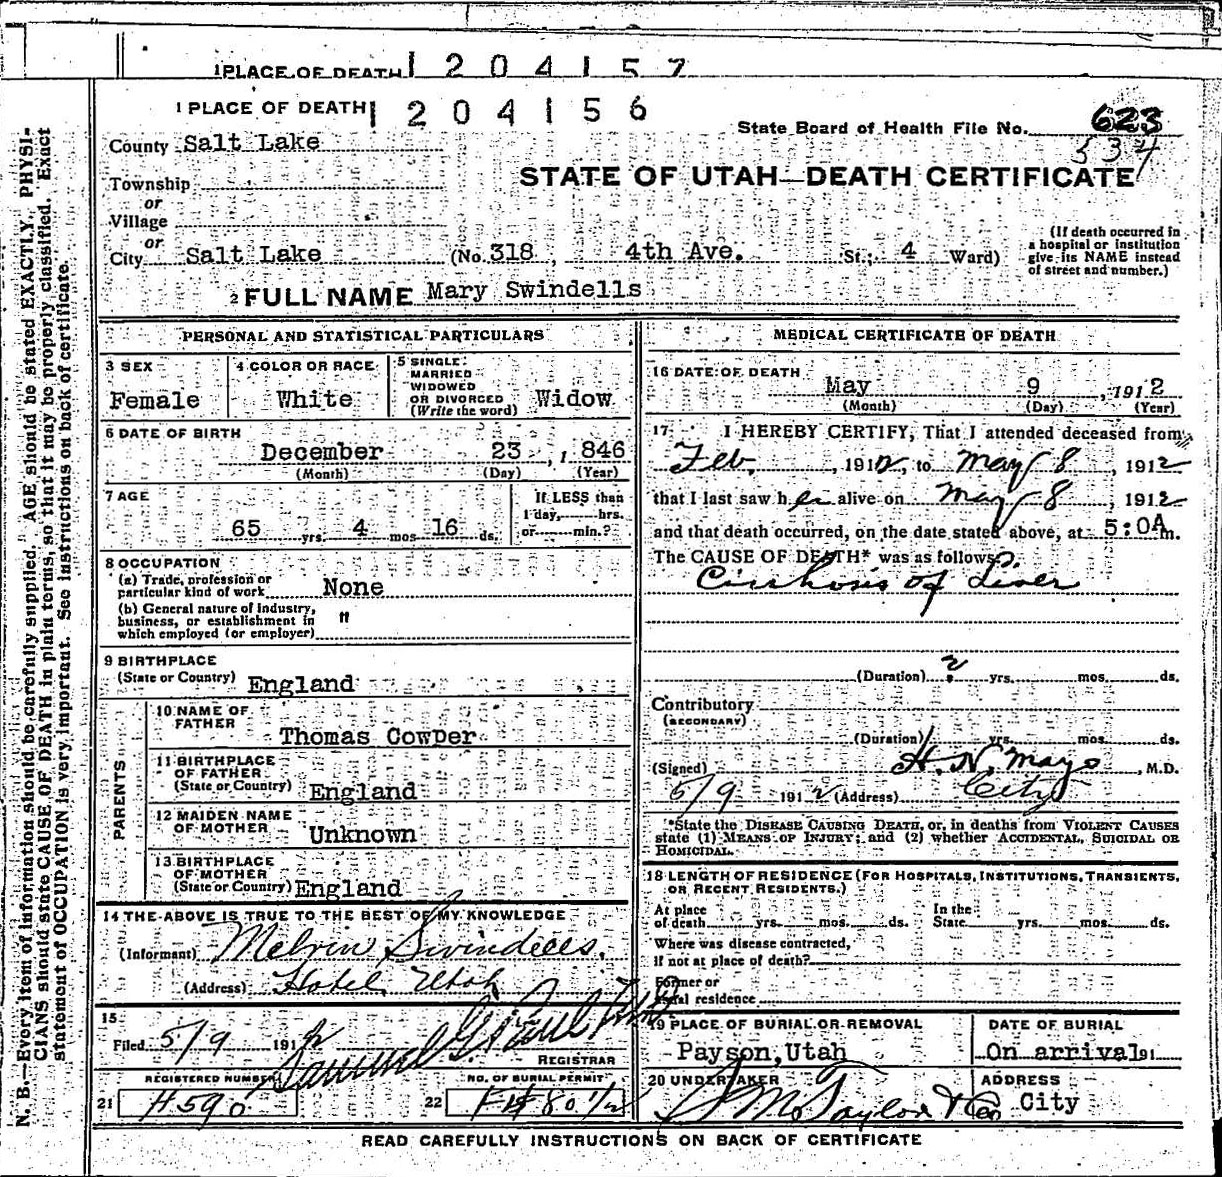 1 PLACE OF DEATH 1 2 0 4 1 5 7
1 PLACE OF DEATH 1 2 0 4 1 5 6
State Board of Health File No. 623
534
County Salt Lake
STATE OF UTAH—DEATH CERTIFICATE
Township
or
Village
or
City Salt Lake (No. 318, 4th Ave. St.; 4 Ward)
(If death occurred in a hospital or institution give its NAME instead of street and number.)
2 FULL NAME Mary Swindells
PERSONAL AND STATISTICAL PARTICULARS
3 SEX
Female
4 COLOR OR RACE
White
5 SINGLE
MARRIED
WIDOWED
OR DIVORCED
(Write the word) Widow
6 DATE OF BIRTH
December 23, 1846
(Month) (Day) (Year)
7 AGE
65 yrs. 4 mos 16 ds.
If LESS than
1 day, hrs.
or min.?
8 OCCUPATION
(a) Trade, profession or
particular kind of work None
(b) General nature of industry,
business, or establishment in
which employed (or employer) "
9 BIRTHPLACE
(State or Country) England
PARENTS
10 NAME OF
FATHER
Thomas Cowper
11 BIRTHPLACE
OF FATHER
(State or Country) England
12 MAIDEN NAME
OF MOTHER Unknown
13 BIRTHPLACE
OF MOTHER
(State or Country) England
14 THE ABOVE IS TRUE TO THE BEST OF MY KNOWLEDGE
(Informant) Melvin Swindells.
(Address) Hotel Utah
15
Filed 5/9 1912
Samuel G. Paul
REGISTRAR
REGISTERED NUMBER
21 H590
NO. OF BURIAL PERMIT
22
MEDICAL CERTIFICATE OF DEATH
16 DATE OF DEATH
May 9, 1912
(Month) (Day) (Year)
17 I HEREBY CERTIFY, That I attended deceased from
Feb, 1912, to May 8, 1912
that I last saw her alive on May 8, 1912
and that death occurred, on the date stated above, at 5:0A m.
The CAUSE OF DEATH* was as follows:
Cirrhosis of Liver
(Duration) 2 ? yrs. mos. ds.
Contributory
(SECONDARY)
(Duration) yrs. mos. ds.
(Signed) H. N. Mayo, M.D.
5/9 1912 (Address) City
*State the DISEASE CAUSING DEATH, or, in deaths from VIOLENT CAUSES
state (1) MEANS OF INJURY; and (2) whether ACCIDENTAL, SUICIDAL OR
HOMICIDAL.
18 LENGTH OF RESIDENCE (FOR HOSPITALS, INSTITUTIONS, TRANSIENTS,
OR RECENT RESIDENTS.)
At place
of death yrs. mos. ds.
In the
State yrs. mos. ds.
Where was disease contracted,
if not at place of death?
Former or
usual residence
19 PLACE OF BURIAL OR REMOVAL
Payson, Utah
DATE OF BURIAL
On arrival 191
20 UNDERTAKER
S M Taylor & Co
ADDRESS
City
READ CAREFULLY INSTRUCTIONS ON BACK OF CERTIFICATE
N. B.—Every item of information should be carefully supplied. AGE should be stated EXACTLY. PHYSI-
CIANS should state CAUSE OF DEATH in plain terms, so that it may be properly classified. Exact
statement of OCCUPATION is very important. See instructions on back of certificate.